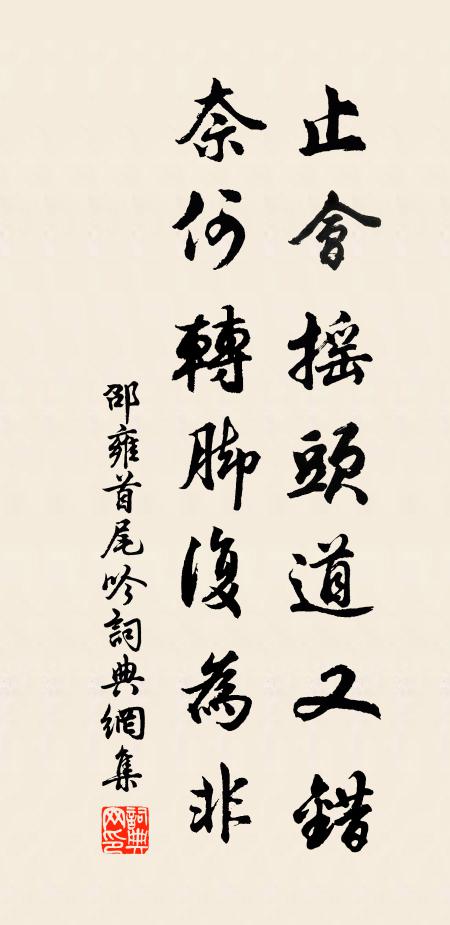 止會摇頭道又錯
奈何轉脚復為非
邵雍首尾吟詞典網集
詞典网印